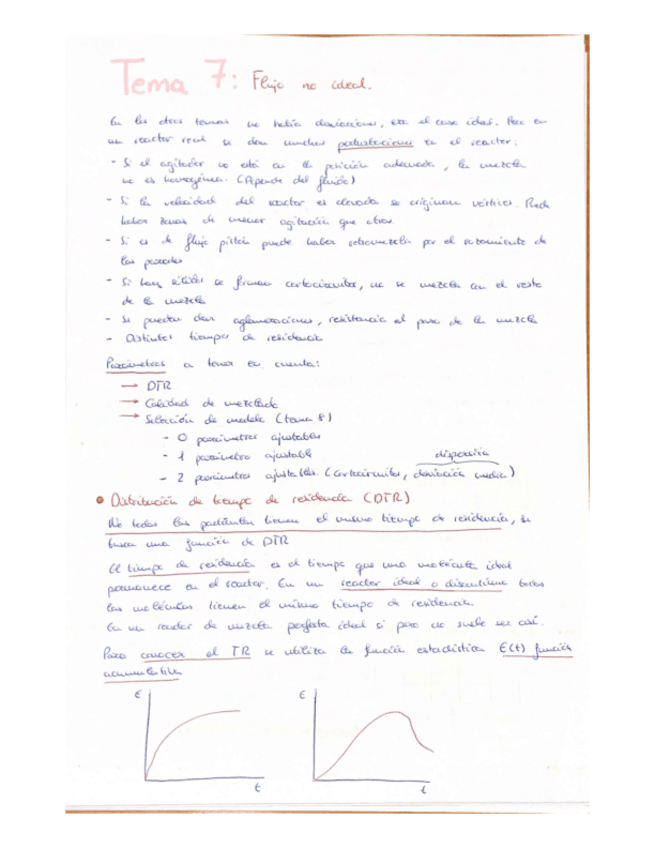 Tema 7: Flujo no ideal.
En los otros temas no había desviaciones, era el caso ideal. Pero en
un reactor real se dan muchas perturbaciones en el reactor:
- Si el agitador no está en la posición adecuada, la mezcla
no es homogénea. (Depende del fluido)
- Si la velocidad del reactor es elevada se originan vórtices. Puede
haber zonas de menor agitación que otras.
- Si es de flujo pistón puede haber retromezcla por el rozamiento de
las paredes
- Si hay sólidos se forman cortocircuitos, no se mezcla con el resto
de la mezcla
- Se pueden dar aglomeraciones, resistencia al paso de la mezcla
- Distintos tiempos de residencia
Parámetros a tener en cuenta:
→ DTR
→ Calidad de mezclado
→ Selección de modelo (tema 8)
- 0 parámetros ajustables
- 1 parámetro ajustable
- 2 parámetros ajustables. (cortocircuitos, desviación media)
dispersión
• Distribución de tiempo de residencia (DTR)
No todas las partículas tienen el mismo tiempo de residencia, se
busca una función de DTR
El tiempo de residencia es el tiempo que una molécula ideal
permanece en el reactor. En un reactor ideal o discontinuo todas
las moléculas tienen el mismo tiempo de residencia.
En un reactor de mezcla perfecta ideal si pero no suele ser así.
Para conocer el TR se utiliza la función estadística E(t) función
acumulativa
E
t
E
t